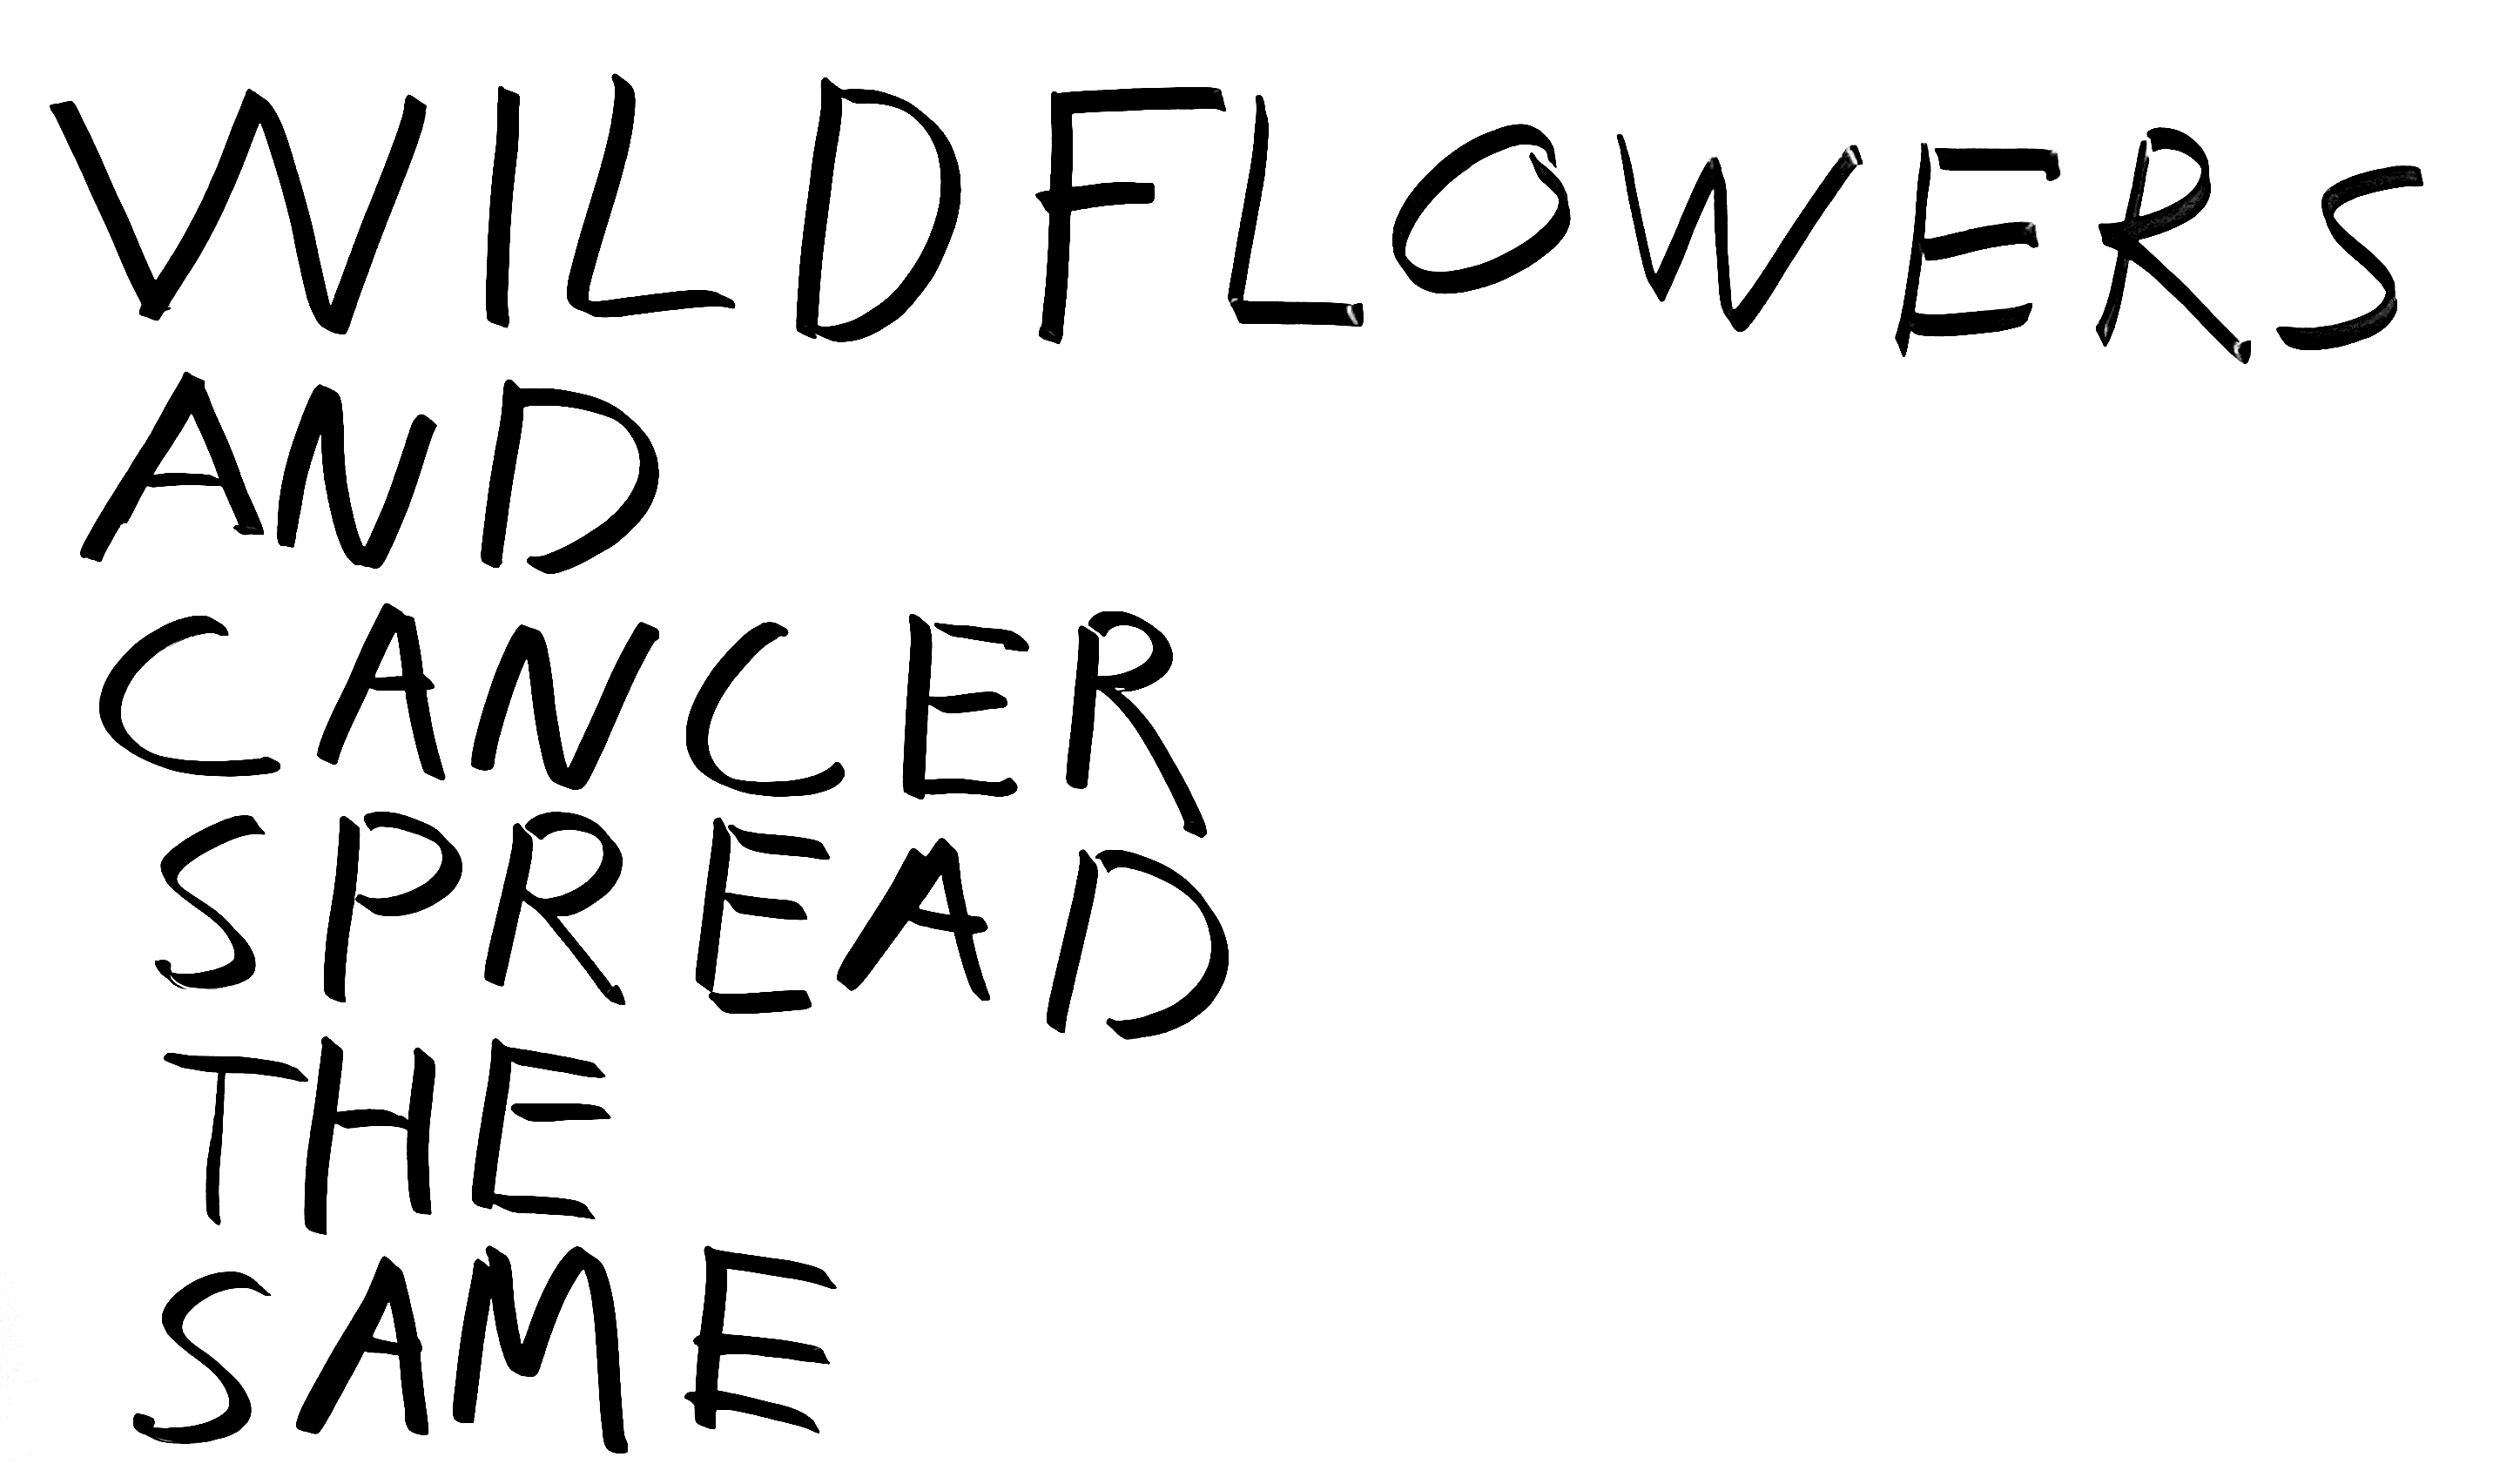 WILDFLOWERS
AND
CANCER
SPREAD
THE
SAME